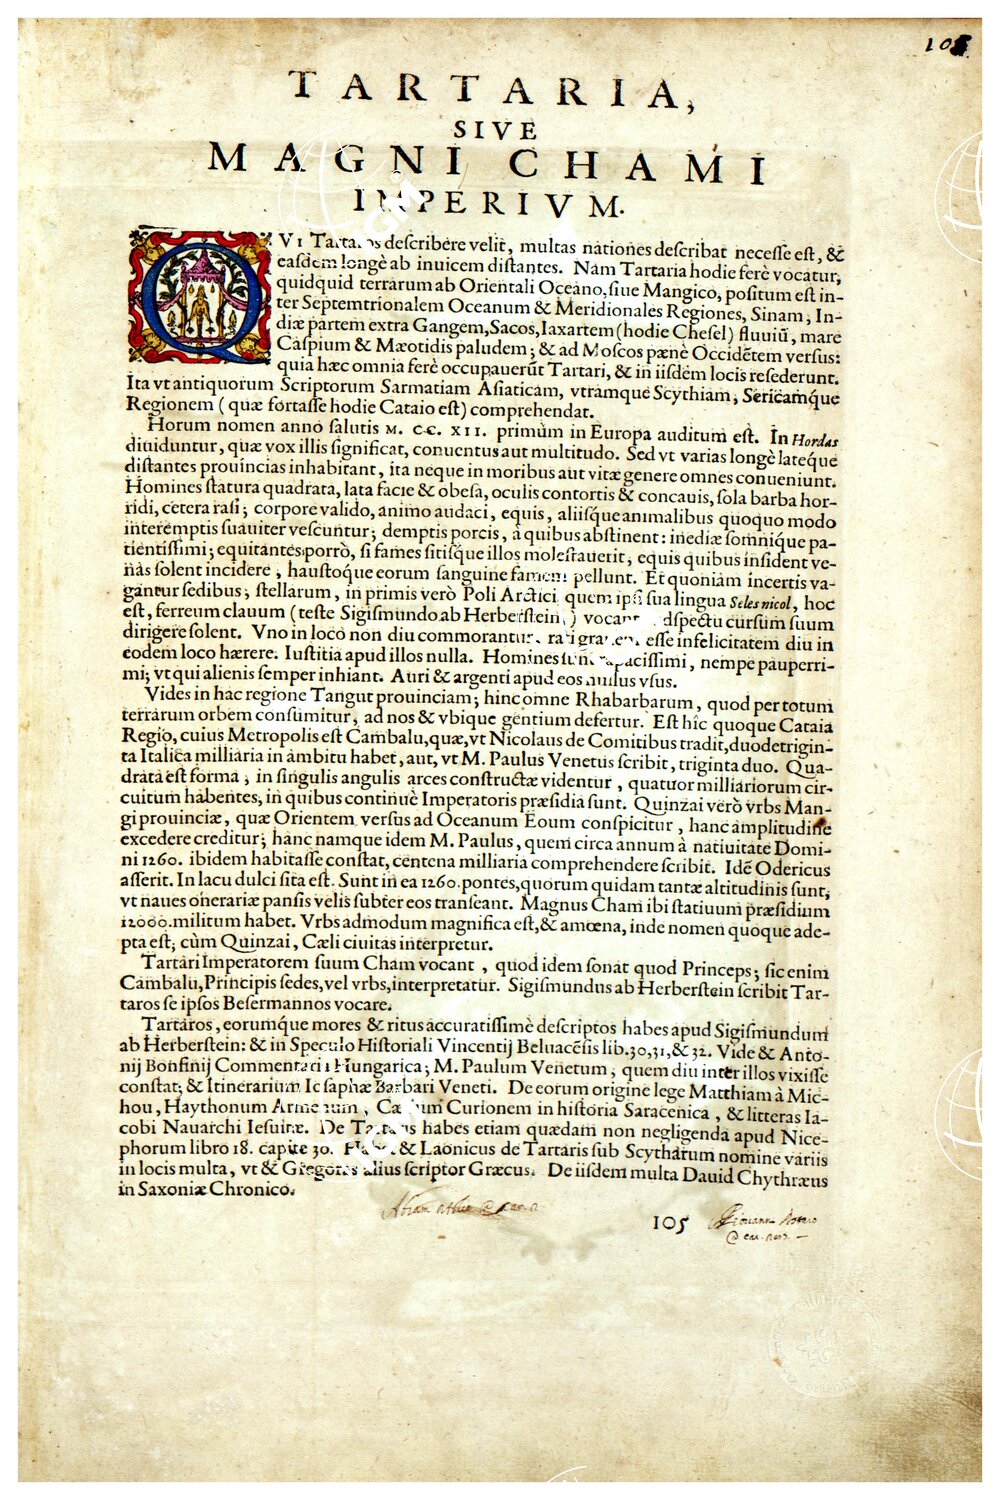 105
TARTARIA,
SIVE
MAGNI CHAMI
IMPERIVM.
QVI Tartaros deſcribere velit, multas nationes deſcribat neceſſe eſt, &
eaſdem longè ab inuicem diſtantes. Nam Tartaria hodie ferè vocatur,
quidquid terrarum ab Orientali Oceano, ſiue Mangico, poſitum eſt in-
ter Septemtrionalem Oceanum & Meridionales Regiones, Sinam, In-
diæ partem extra Gangem, Sacos, Iaxartem (hodie Cheſel) fluuiũ, mare
Caſpium & Mæotidis paludem; & ad Moſcos pænè Occidẽtem verſus:
quia hæc omnia ferè occupauerũt Tartari, & in iiſdem locis reſederunt.
Ita vt antiquorum Scriptorum Sarmatiam Aſiaticam, vtramque Scythiam, Sericamque
Regionem (quæ fortaſſe hodie Cataio eſt) comprehendat.
Horum nomen anno ſalutis M. CC. XII. primùm in Europa auditum eſt. In Hordas
diuiduntur, quæ vox illis ſignificat, conuentus aut multitudo. Sed vt varias longè lateque
diſtantes prouincias inhabitant, ita neque in moribus aut vitæ genere omnes conueniunt.
Homines ſtatura quadrata, lata facie & obeſa, oculis contortis & concauis, ſola barba hor-
ridi, cetera raſi; corpore valido, animo audaci, equis, aliiſque animalibus quoquo modo
interemptis ſuauiter veſcuntur; demptis porcis, à quibus abſtinent: inediæ ſomnique pa-
tientiſſimi; equitantes porrò, ſi fames ſitiſque illos moleſtauerit, equis quibus inſident ve-
nas ſolent incidere, hauſtoque eorum ſanguine famem pellunt. Et quoniam incertis va-
gantur ſedibus; ſtellarum, in primis verò Poli Arctici, quem ipſi ſua lingua Selesnicol, hoc
eſt, ferreum clauum (teſte Sigiſmundo ab Herberſtein) vocant, dſpectu curſum ſuum
dirigere ſolent. Vno in loco non diu commorantur, rati grauem eſſe infelicitatem diu in
eodem loco hærere. Iuſtitia apud illos nulla. Homines ſunt rapaciſſimi, nempe pauperri-
mi; vt qui alienis ſemper inhiant. Auri & argenti apud eos nullus vſus.
Vides in hac regione Tangut prouinciam; hinc omne Rhabarbarum, quod per totum
terrarum orbem conſumitur, ad nos & vbique gentium defertur. Eſt hîc quoque Cataia
Regio, cuius Metropolis eſt Cambalu, quæ, vt Nicolaus de Comitibus tradit, duodetrigin-
ta Italica milliaria in ambitu habet, aut, vt M. Paulus Venetus ſcribit, triginta duo. Qua-
drata eſt forma; in ſingulis angulis arces conſtructæ videntur, quatuor milliariorum cir-
cuitum habentes; in quibus continuè Imperatoris præſidia ſunt. Quinzai verò vrbs Man-
gi prouinciæ, quæ Orientem verſus ad Oceanum Eoum conſpicitur, hanc amplitudine
excedere creditur; hanc namque idem M. Paulus, quem circa annum à natiuitate Domi-
ni 1260. ibidem habitaſſe conſtat, centena milliaria comprehendere ſcribit. Idẽ Odericus
aſſerit. In lacu dulci ſita eſt. Sunt in ea 1260. pontes, quorum quidam tantæ altitudinis ſunt,
vt naues onerariæ panſis velis ſubter eos tranſeant. Magnus Cham ibi ſtatiuum præſidium
12000. militum habet. Vrbs admodum magnifica eſt, & amœna, inde nomen quoque ade-
pta eſt; cùm Quinzai, Cæli ciuitas interpretur.
Tartari Imperatorem ſuum Cham vocant, quod idem ſonat quod Princeps; ſic enim
Cambalu, Principis ſedes, vel vrbs, interpretatur. Sigiſmundus ab Herberſtein ſcribit Tar-
taros ſe ipſos Beſermannos vocare.
Tartaros, eorumque mores & ritus accuratiſſimè deſcriptos habes apud Sigiſmundum
ab Herberſtein: & in Speculo Hiſtoriali Vincentij Beluacẽſis lib. 30, 31, & 32. Vide & Anto-
nij Bonfinij Commentarii Hungarica; M. Paulum Venetum, quem diu inter illos vixiſſe
conſtat; & Itinerarium Ioſaphæ Barbari Veneti. De eorum origine lege Matthiam à Mic-
hou, Haythonum Armenum, Cælium Curionem in hiſtoria Saracenica, & litteras Ia-
cobi Nauarchi Ieſuitæ. De Tartaris habes etiam quædam non negligenda apud Nice-
phorum libro 18. capite 30. Habet & Laonicus de Tartaris ſub Scytharum nomine variis
in locis multa, vt & Gregoras alius ſcriptor Græcus. De iiſdem multa Dauid Chythræus
in Saxoniæ Chronico.
105